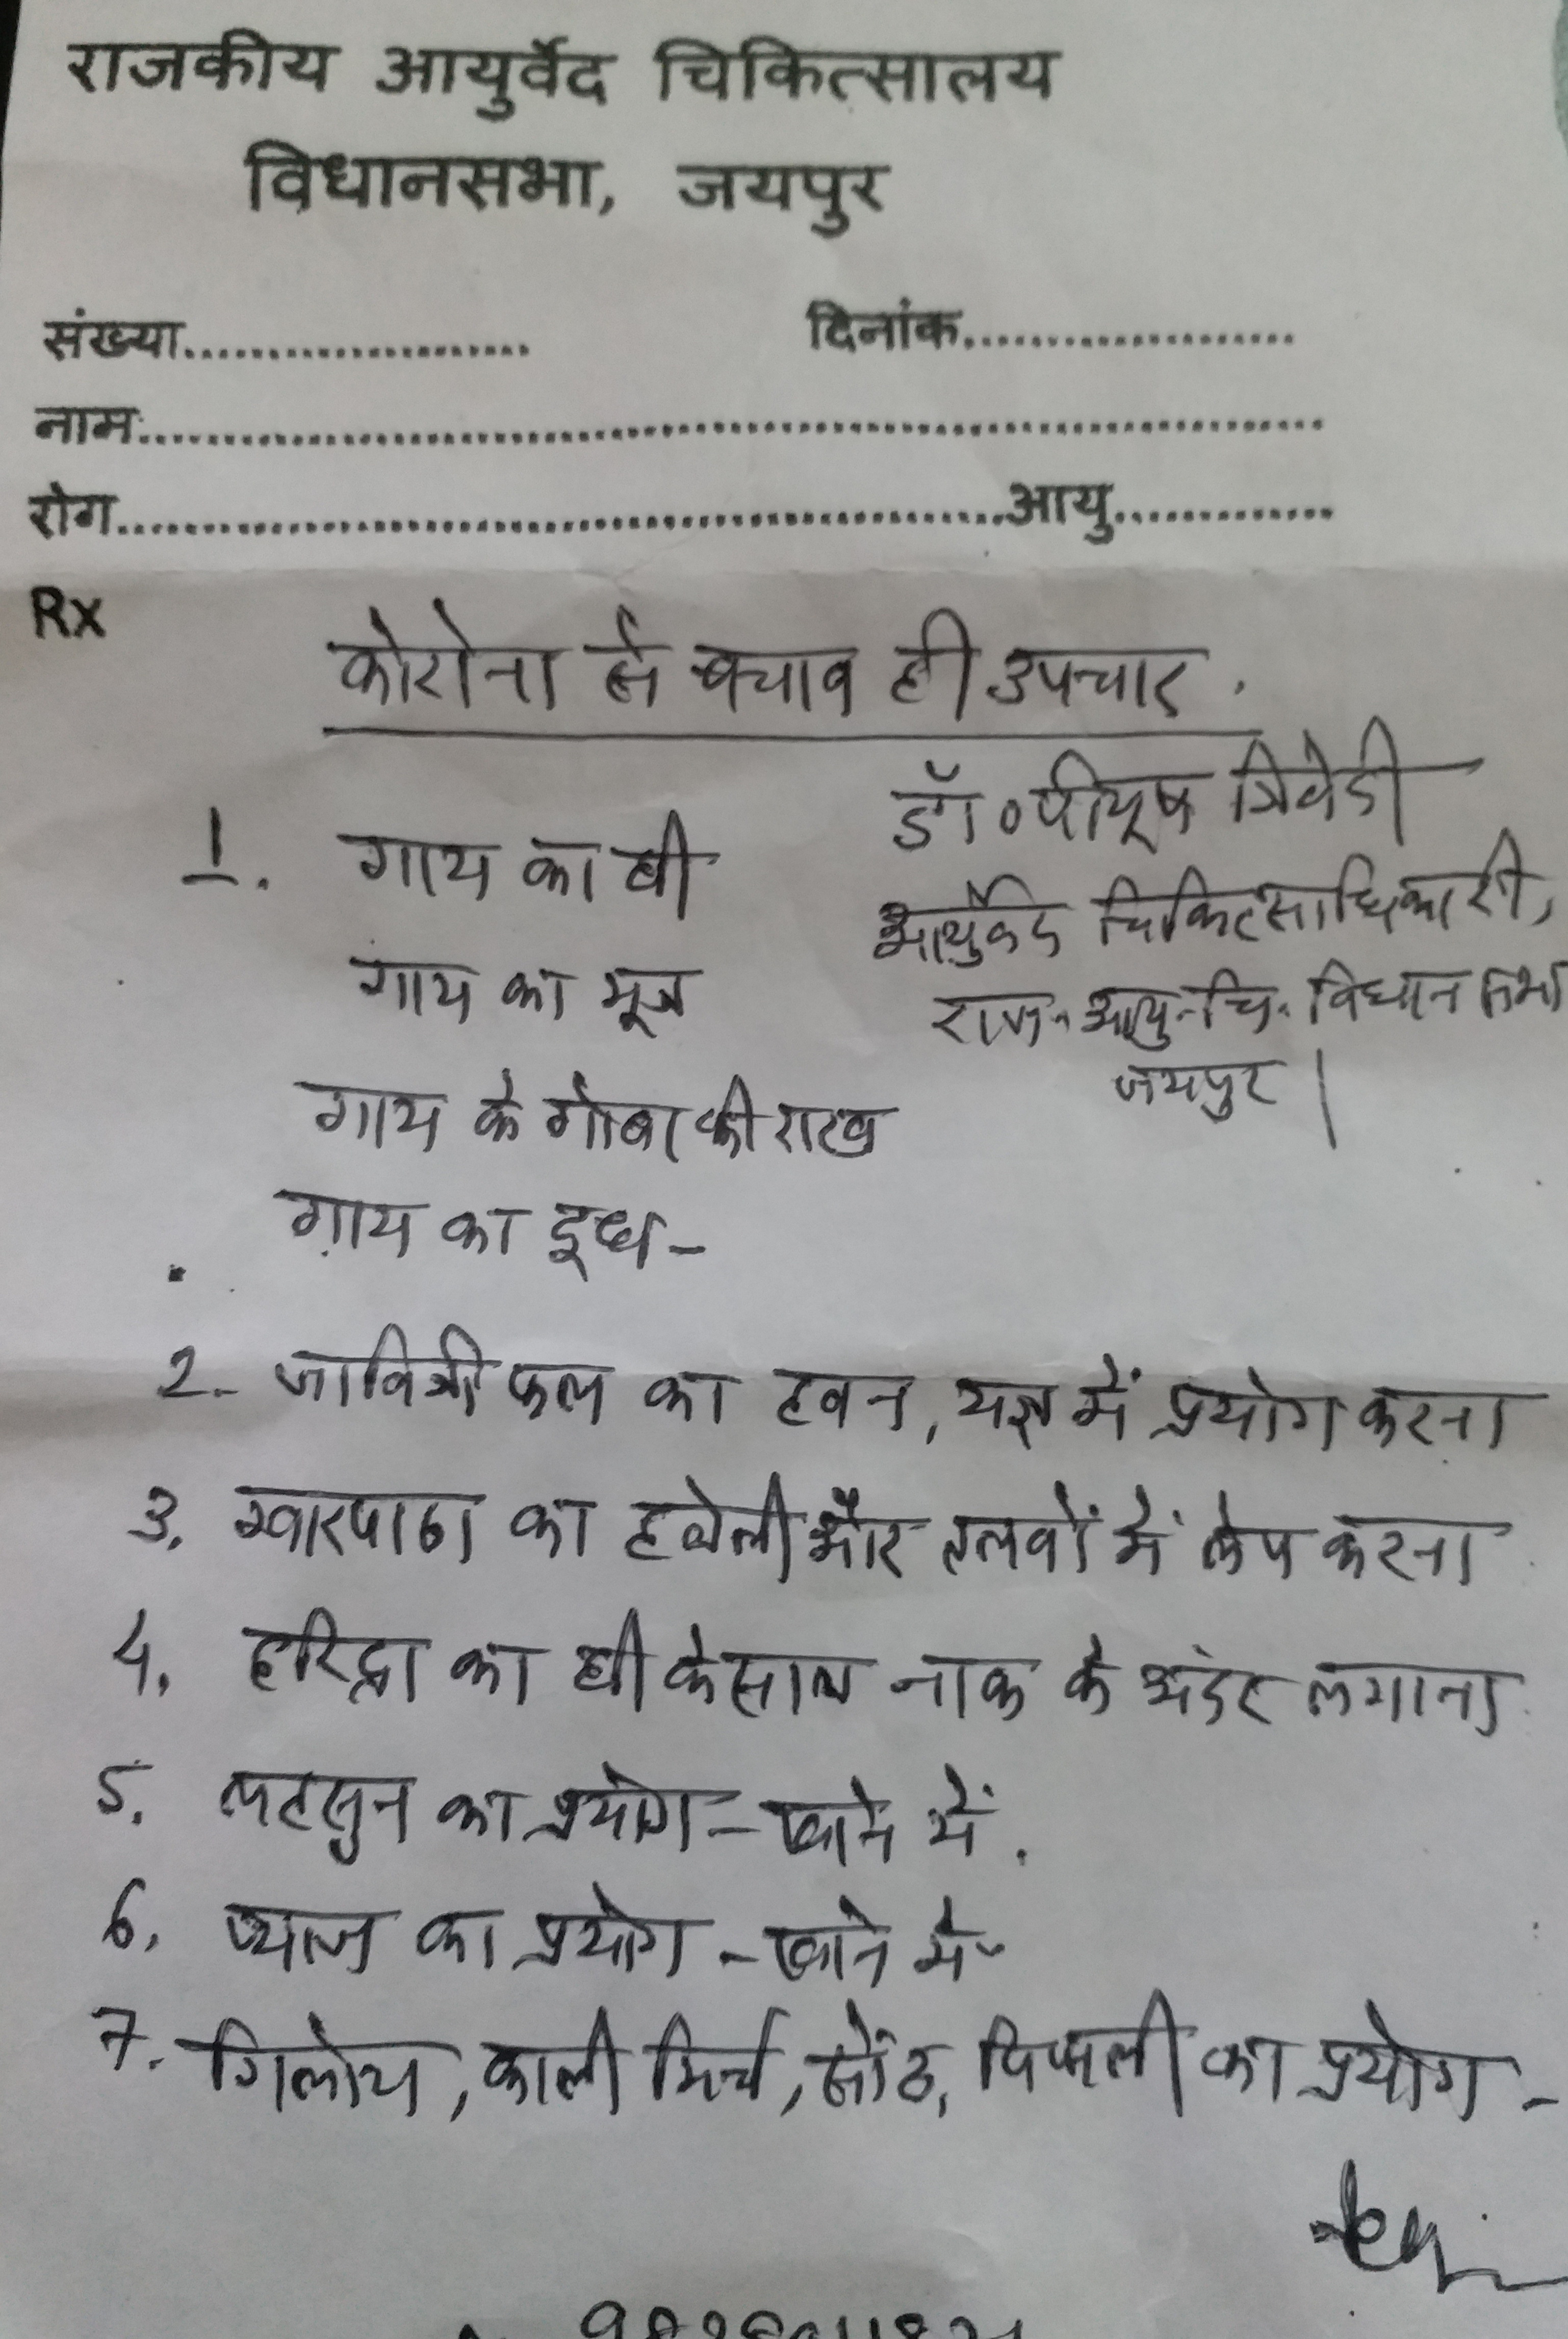 राजकीय आयुर्वेद चिकित्सालय
विधानसभा, जयपुर
संख्या..................... दिनांक.....................
नाम:.......................................................................
रोग......................................................आयु.............
Rx
कोरोना से बचाव ही उपचार.
डॉ० पीयूष त्रिवेदी
आर्युवेद चिकित्साधिकारी,
राज. आयु. चि. विधान सभा
जयपुर |
1. गाय का घी
गाय का मूत्र
गाय के गोबर की राख
गाय का दूध -
2. जावित्री फल का हवन, यज्ञ में प्रयोग करना
3. ग्वारपाठा का हथेली और तलवों में लेप करना
4. हरिद्रा का घी के साथ नाक के अंदर लगाना
5. लहसुन का प्रयोग - खाने में.
6. प्याज का प्रयोग - खाने में -
7. गिलोय, काली मिर्च, सोंठ, पिप्पली का प्रयोग -